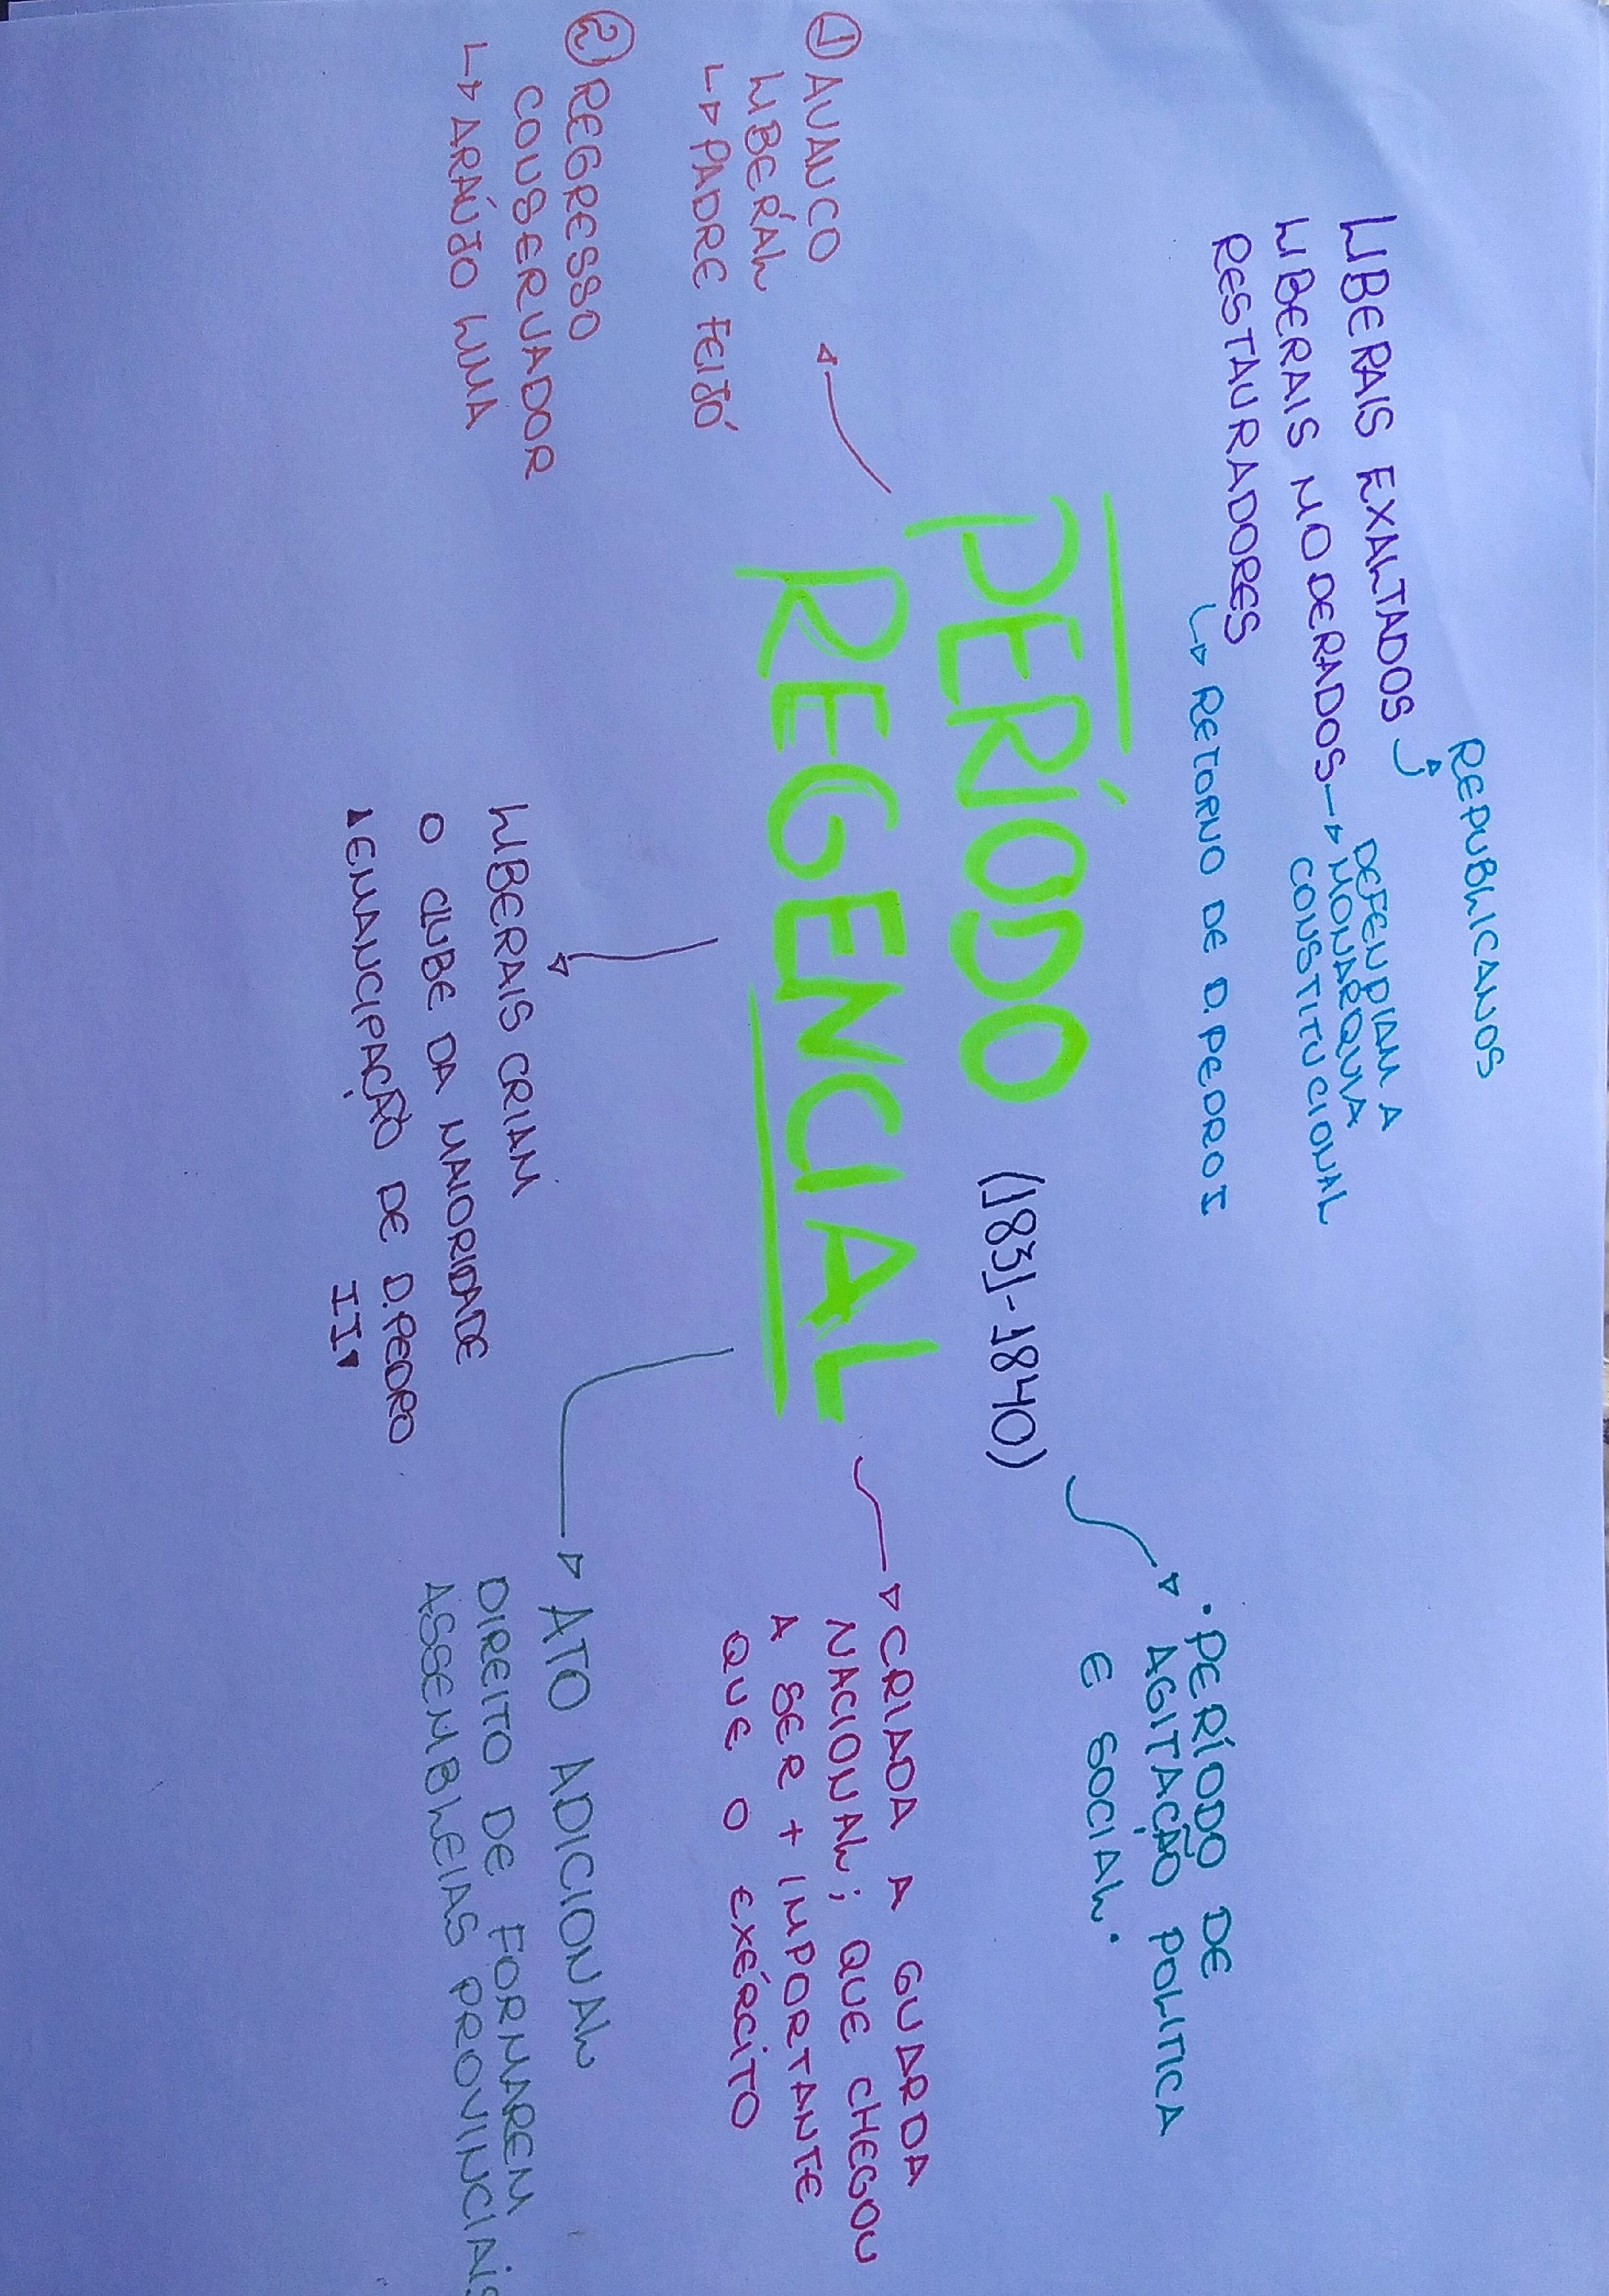 REPUBLICANOS
LIBERAIS EXALTADOS
LIBERAIS MODERADOS
DEFENDIAM A
MONARQUIA
CONSTITUCIONAL
RESTAURADORES
RETORNO DE D. PEDRO I
PERÍODO
REGENCIAL
(1831-1840)
• PERÍODO DE
AGITAÇÃO POLITICA
E SOCIAL •
CRIADA A GUARDA
NACIONAL; QUE CHEGOU
A SER + IMPORTANTE
QUE O EXÉRCITO
ATO ADICIONAL
DIREITO DE FORMAREM
ASSEMBLEIAS PROVINCIAIS
① AVANCO
LIBERAL
PADRE FEIJÓ
② REGRESSO
CONSERVADOR
ARAÚJO LIMA
LIBERAIS CRIAM
O CLUBE DA MAIORIDADE
"EMANCIPAÇÃO DE D. PEDRO
II"